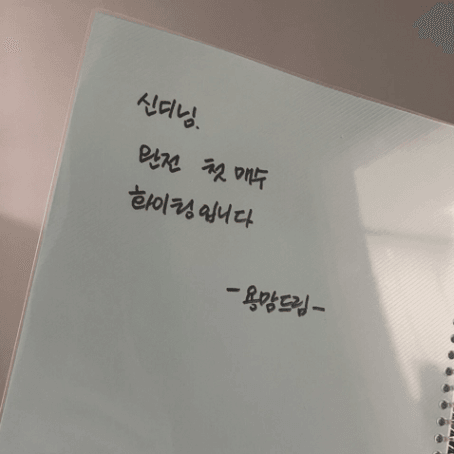 신디님.
완전 첫 매수
화이팅입니다
-용맘드림-